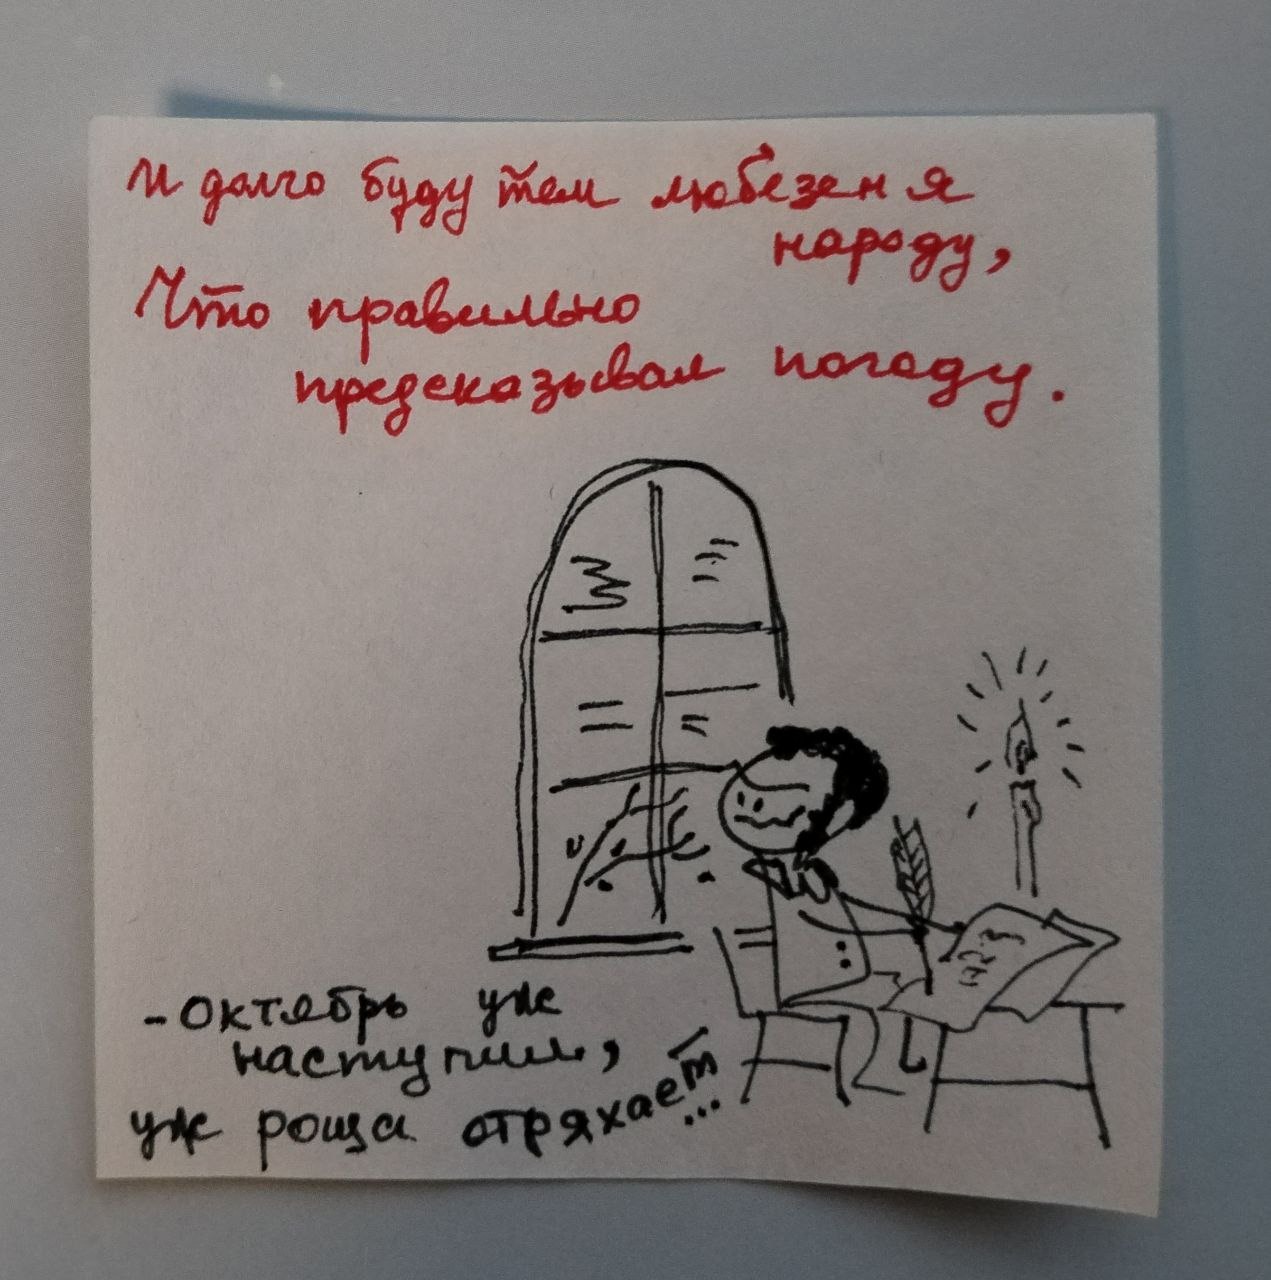 И долго буду тем любезен я
народу,
Что правильно
предсказывал погоду.
- Октябрь уж
наступил,
уж роща отряхает...